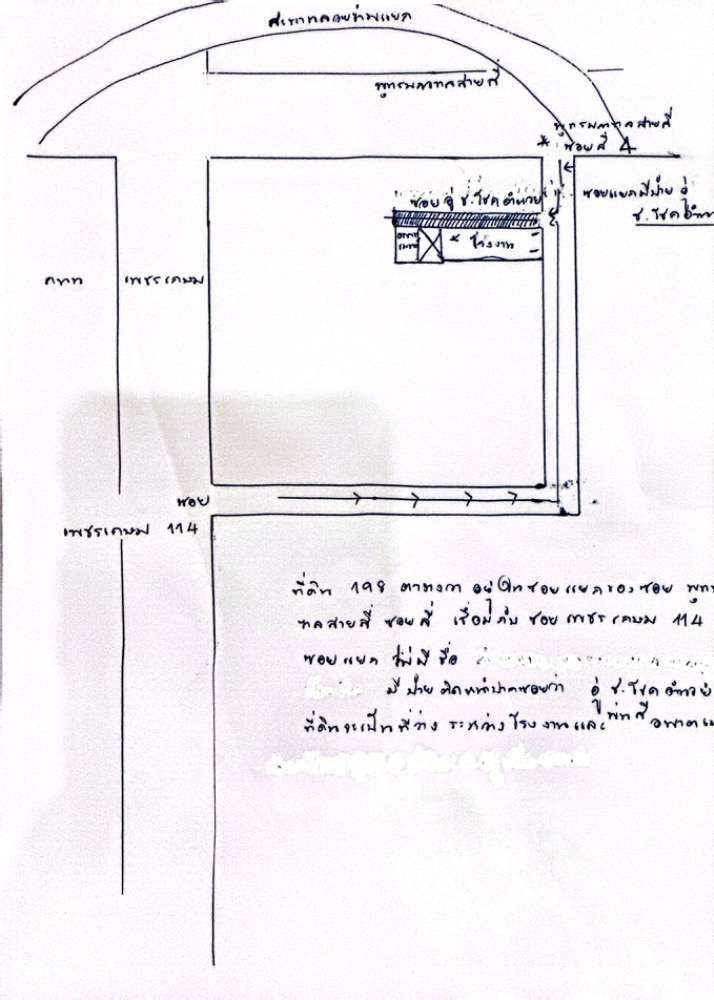 สะพานลอยข้ามแยก
พุทธมณฑลสายสี่
พุทธมณฑลสายสี่
* ซอยสี่ 4
ซอย อู่ ช.โชคอำนวย
ซอยแยกมีป้าย อู่
ช.โชคอำนว
* โรงงาน
ถนน
เพชรเกษม
ซอย
เพชรเกษม 114
ที่ดิน 198 ตารางวา อยู่ในซอยแยกของซอย พุทธ
ฑลสายสี่ ซอยสี่ เชื่อมกับ ซอยเพชรเกษม 114
ซอยแยก ไม่มีชื่อ
มีป้ายติดหน้าปากซอยว่า อู่ ช.โชคอำนวย
ที่ดินจะเป็นที่ว่าง ระหว่างโรงงานและ